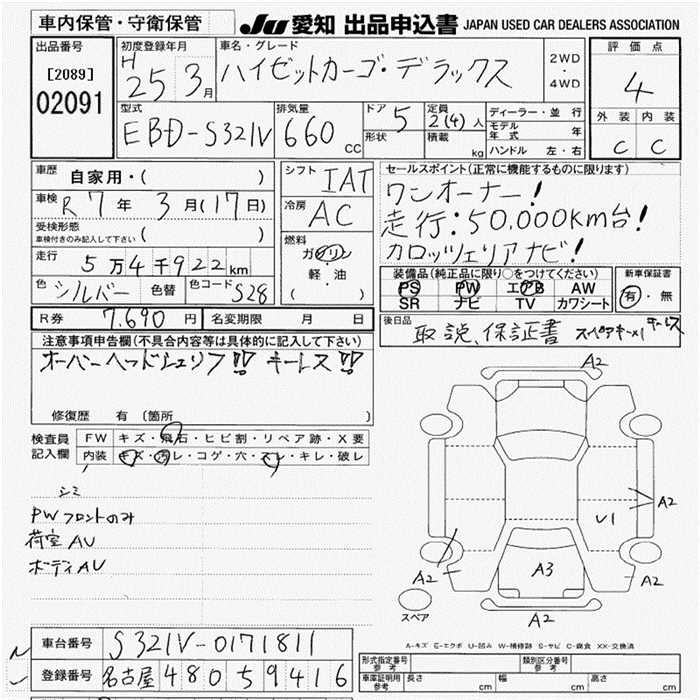 車内保管・守衛保管 JU 愛知 出品申込書 JAPAN USED CAR DEALERS ASSOCIATION
出品番号 [2089] 02091
初度登録年月 H 25 3月
車名・グレード ハイゼットカーゴ・デラックス 2WD・4WD
評価点 4
外装 内装
C C
型式 EBD-S321V
排気量 660 CC
ドア 5
形状
定員 2(4)人
積載 kg
ディーラー・並行
モデル年式 年
ハンドル 左・右
車歴 自家用・( )
車検 R 7年 3月(17日)
受検形態
車検付きのみ記入して下さい ( )
走行 5万4千922km
色 シルバー 色替 色コード S28
シフト IAT
冷房 AC
燃料 ガソリン
軽・油
( )
セールスポイント(正常に機能するものに限ります)
ワンオーナー!
走行:50,000km台!
カロッツェリアナビ!
装備品(純正品に限り○をつけてください)
PS PW エアB AW
SR ナビ TV カワシート
新車保証書
有・無
R券 7.690円 名変期限 月 日
後日品 取説、保証書 スペアキー×1 キーレス
注意事項申告欄(不具合内容等は具体的に記入して下さい)
オーバーヘッドシェルフ!! キーレス!!
修復歴 有(箇所 )
検査員記入欄
FW キズ・飛石・ヒビ割・リペア跡・X要
内装 キズ・汚レ・コゲ・穴・スレ・キレ・破レ
シミ
PWフロントのみ
荷室AU
ボディAU
A2
A2
U1
A2
A2
A3
A2
スペア
A-キズ E-エクボ U-凹み W-補修跡 S-サビ C-腐食 XX-交換済
車台番号 S321V-0171811
登録番号 名古屋 480 5 9416
形式指定番号 参考
類別区分番号 参考
車庫証明用 参考 長さ cm 幅 cm 高さ cm